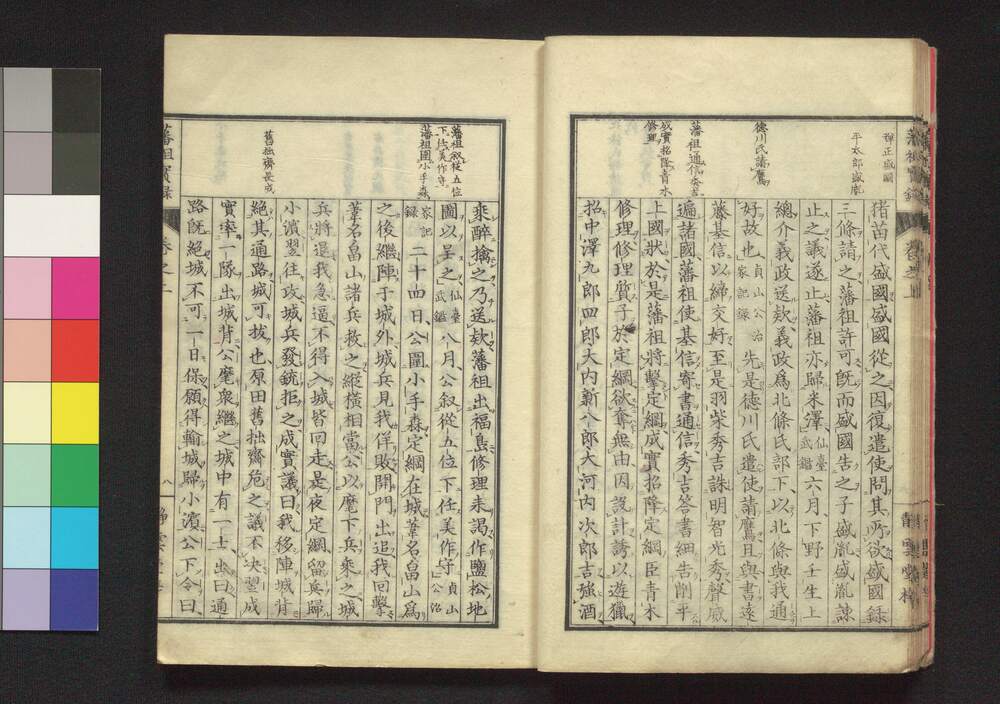 藩祖實錄
卷之上
青雲堂梓
彈正盛國
平太郎盛胤
猪苗代盛國盛國從之因復遣使問其所欲盛國録
三條請之藩祖許可既而盛國告之子盛胤盛胤諫
止之議遂止藩祖亦歸米澤仙臺武鑑六月下野壬生上
總介義政送欵義政爲北條氏部下以北條與我通
德川氏請鷹
好故也貞山公治家記錄先是德川氏遣使請鷹且與書遠
藤基信以締交好至是羽柴秀吉誅明智光秀聲威
藩祖通信秀吉
遍諸國藩祖使基信寄書通信秀吉答書細告削平
成實招降青木修理
上國狀於是藩祖將擊定綱成實招降定綱臣青木
修理修理質子於定綱欲奪無由因設計誘以遊獵
招中澤九郎四郎大内新八郎大河内次郎吉強酒
乘醉擒之乃送欵藩祖出福島修理來謁作鹽松地
藩祖叙從五位下任美作守
圖以呈之仙臺武鑑八月公叙從五位下任美作守貞山公治
藩祖圍小手森
家記錄二十四日公圍小手森定綱在城葦名畠山爲
之後繼陣于城外城兵見我佯敗開門出追我回擊
葦名畠山諸兵救之縱橫相當公以麾下兵乘之城
兵將還我急逼不得入城皆回走是夜定綱留兵歸
小濱翌往攻城兵發銃拒之成實議曰我移陣城背
舊拙齊危成
絶其通路城可拔也原田舊拙齋危之議不决翌成
實率一隊出城背公麾衆繼之城中有一士出曰通
路既絶城不可一日保願得輸城歸小濱公下令曰
藩祖實錄
卷之上
八